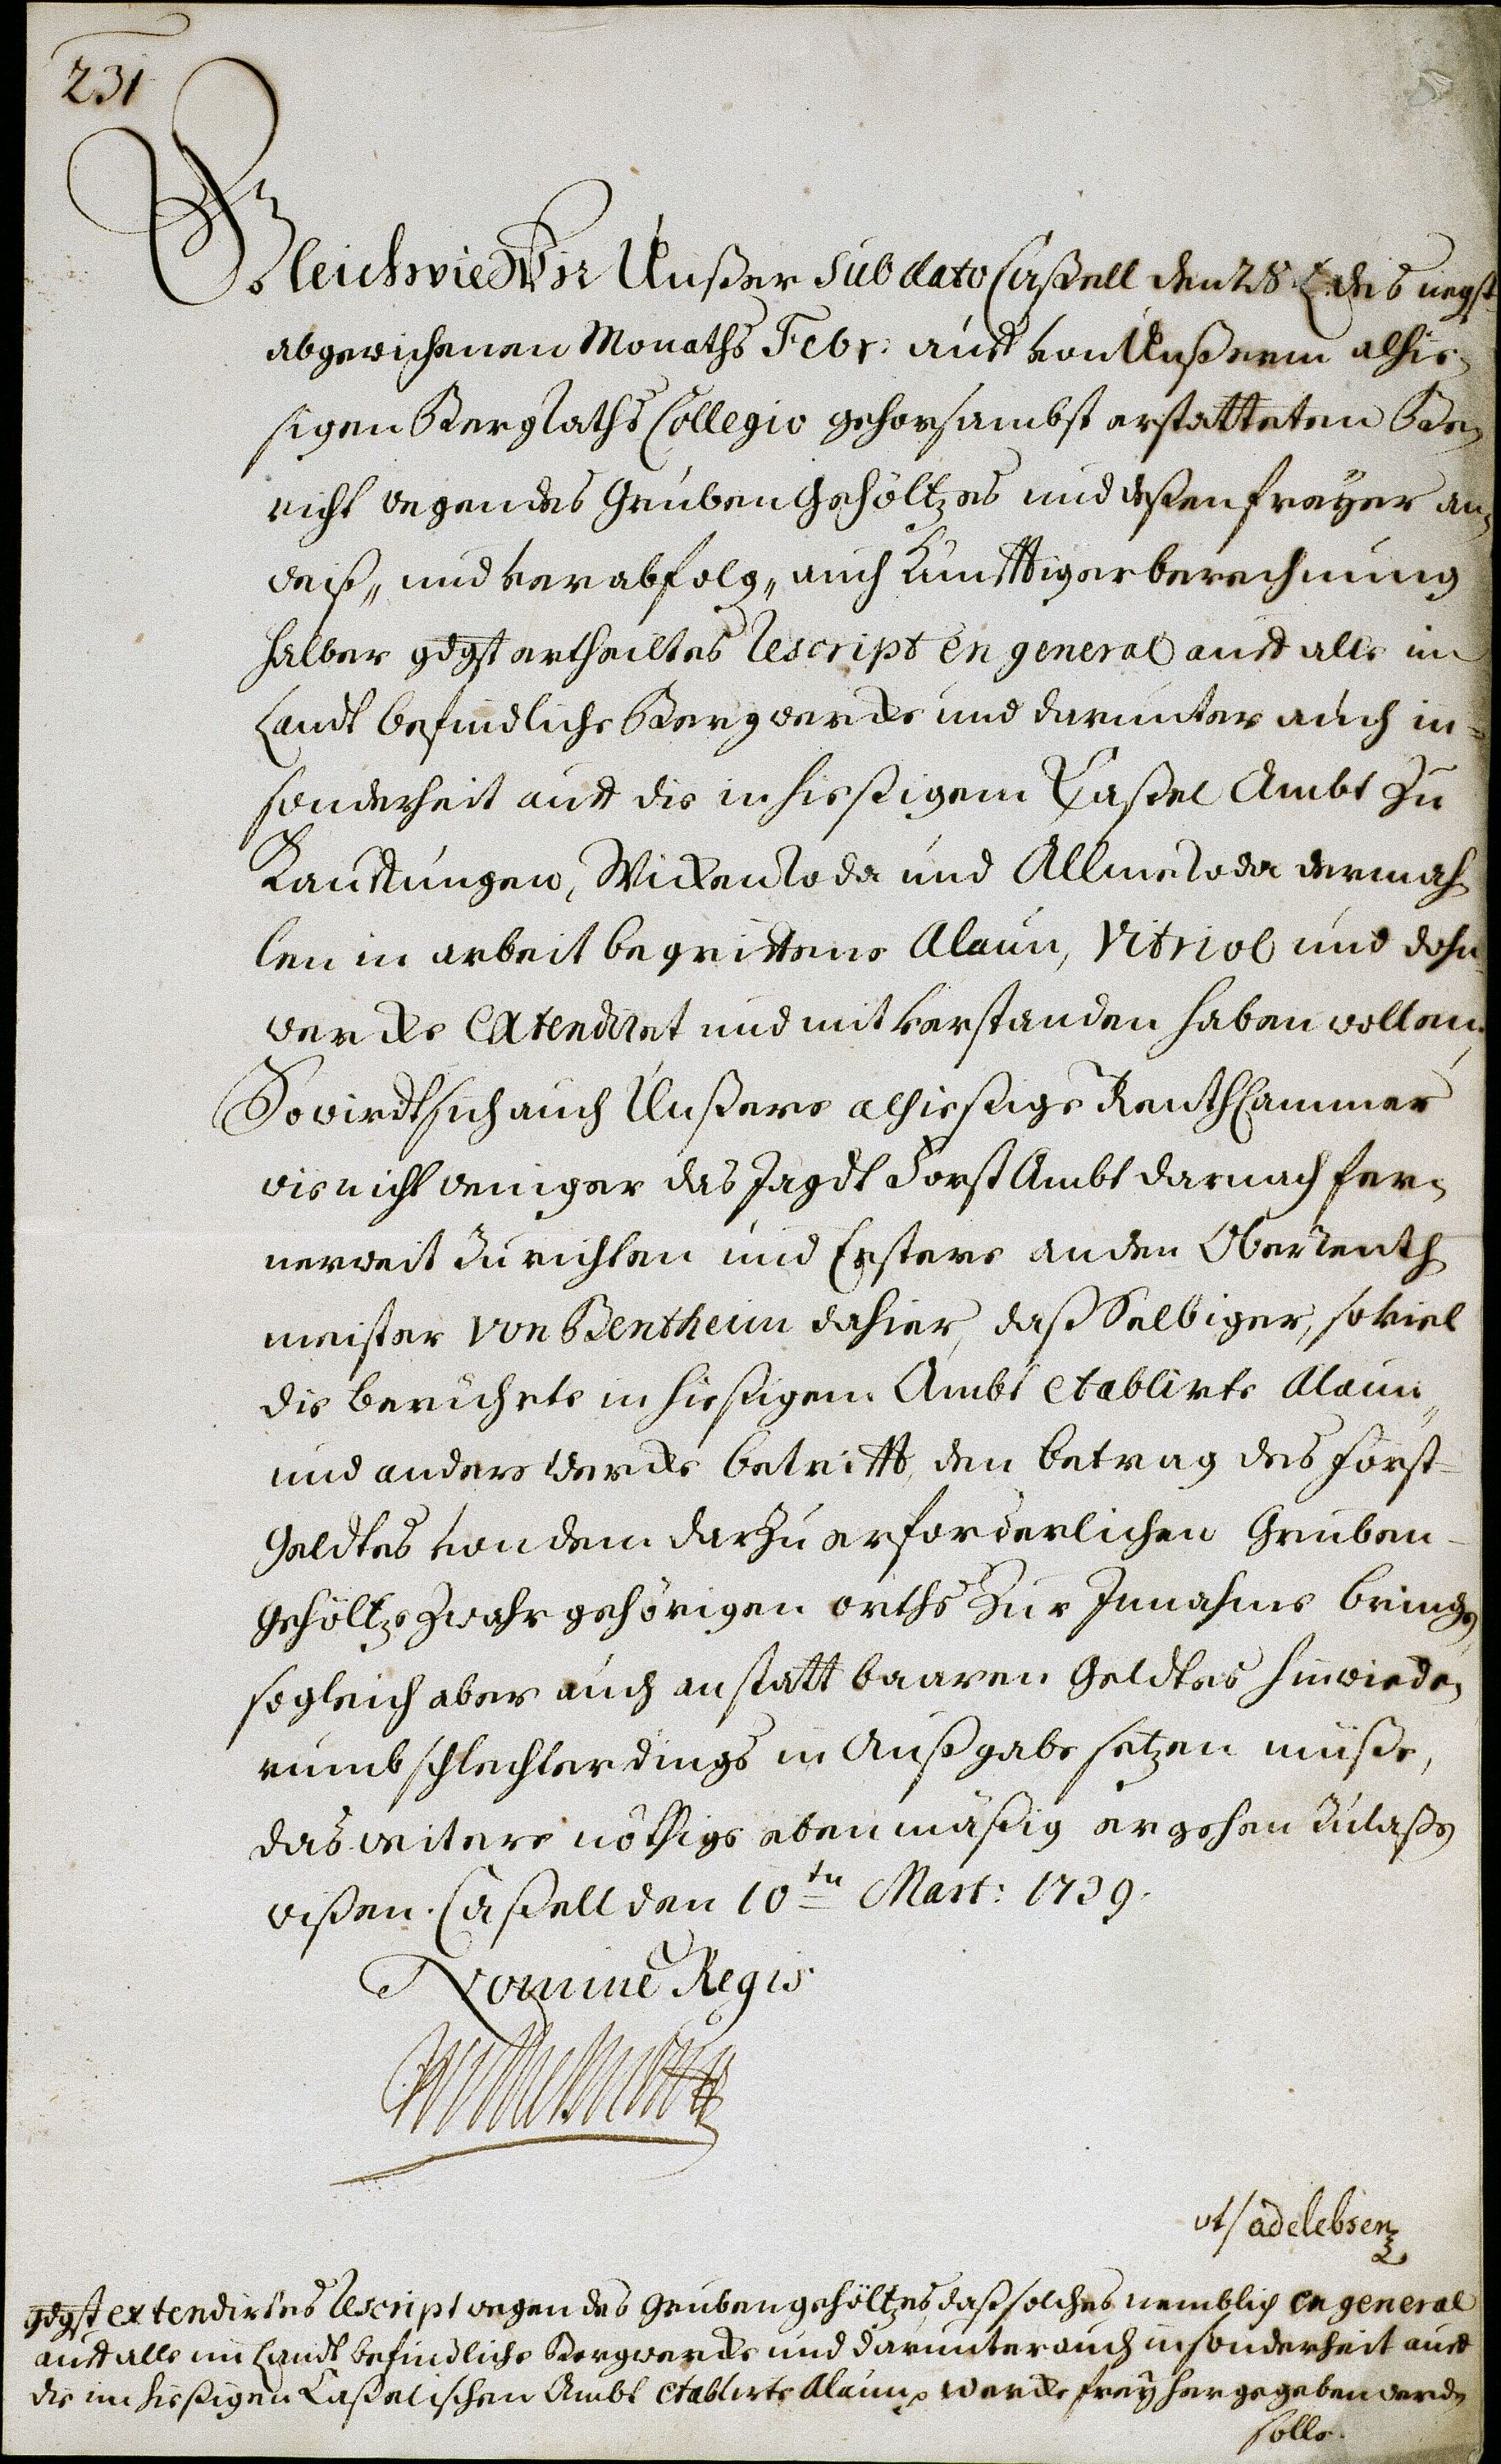 231
Gleichwie Wir Unßer sub dato Caßell den 28. des negst
abgewichenen Monaths Febr: auff von Unßerm alhie-
sigen BergRaths Collegio gehorsambst erstatteten Be-
richt wegen des Gruben Gehöltzes und deßen freyer an-
weiß„ und verabfolg„ auch künfftiger berechnung
halber gdgst ertheiltes Rescript en general auff alle im
Landt befindliche Bergwercke und darunter auch in-
sonderheit auff die in hießigem Caßel Ambt zu
Kauffungen, WickenRoda und AllmeRoda dermah-
len in arbeit begriffene Alaun, Vitriol und dohn-
wercke extendiret und mit verstanden haben wollen;
So wirdt sich auch Unßere alhießige RenthCammer
wie nicht weniger das Jagdt Forst Ambt darnach fer-
nerweit zu richten und Erstere an den OberRenth
meister von Bentheim dahier, daß Selbiger, soviel
die berührte in hießigem Ambt etablirte Alaun„
und andere Wercke betrifft, den betrag des Forst-
Geldtes von dem darzu erforderlichen Gruben-
Gehöltze zwahr gehörigen orths zur Innahme bringen,
sogleich aber auch anstatt baaren Geldtes hinwiede-
rumb schlechterdings in Außgabe setzen müße,
das weitere nöthige ebenmäßig ergehen zu laßen
wißen. Caßell den 10ten Mart: 1739.
Nomine Regis
Wilhelm
vt/ adelebsen
gdgst extendirtes Rescript wegen des Grubengehöltzes, daß solches nemblich en general
auff alle im Landt befindliche Bergwercke und darunter auch insonderheit auff
die im hießigen Caßelischen Ambt etablirte Alaun Wercke frey hergegeben werden
solle.